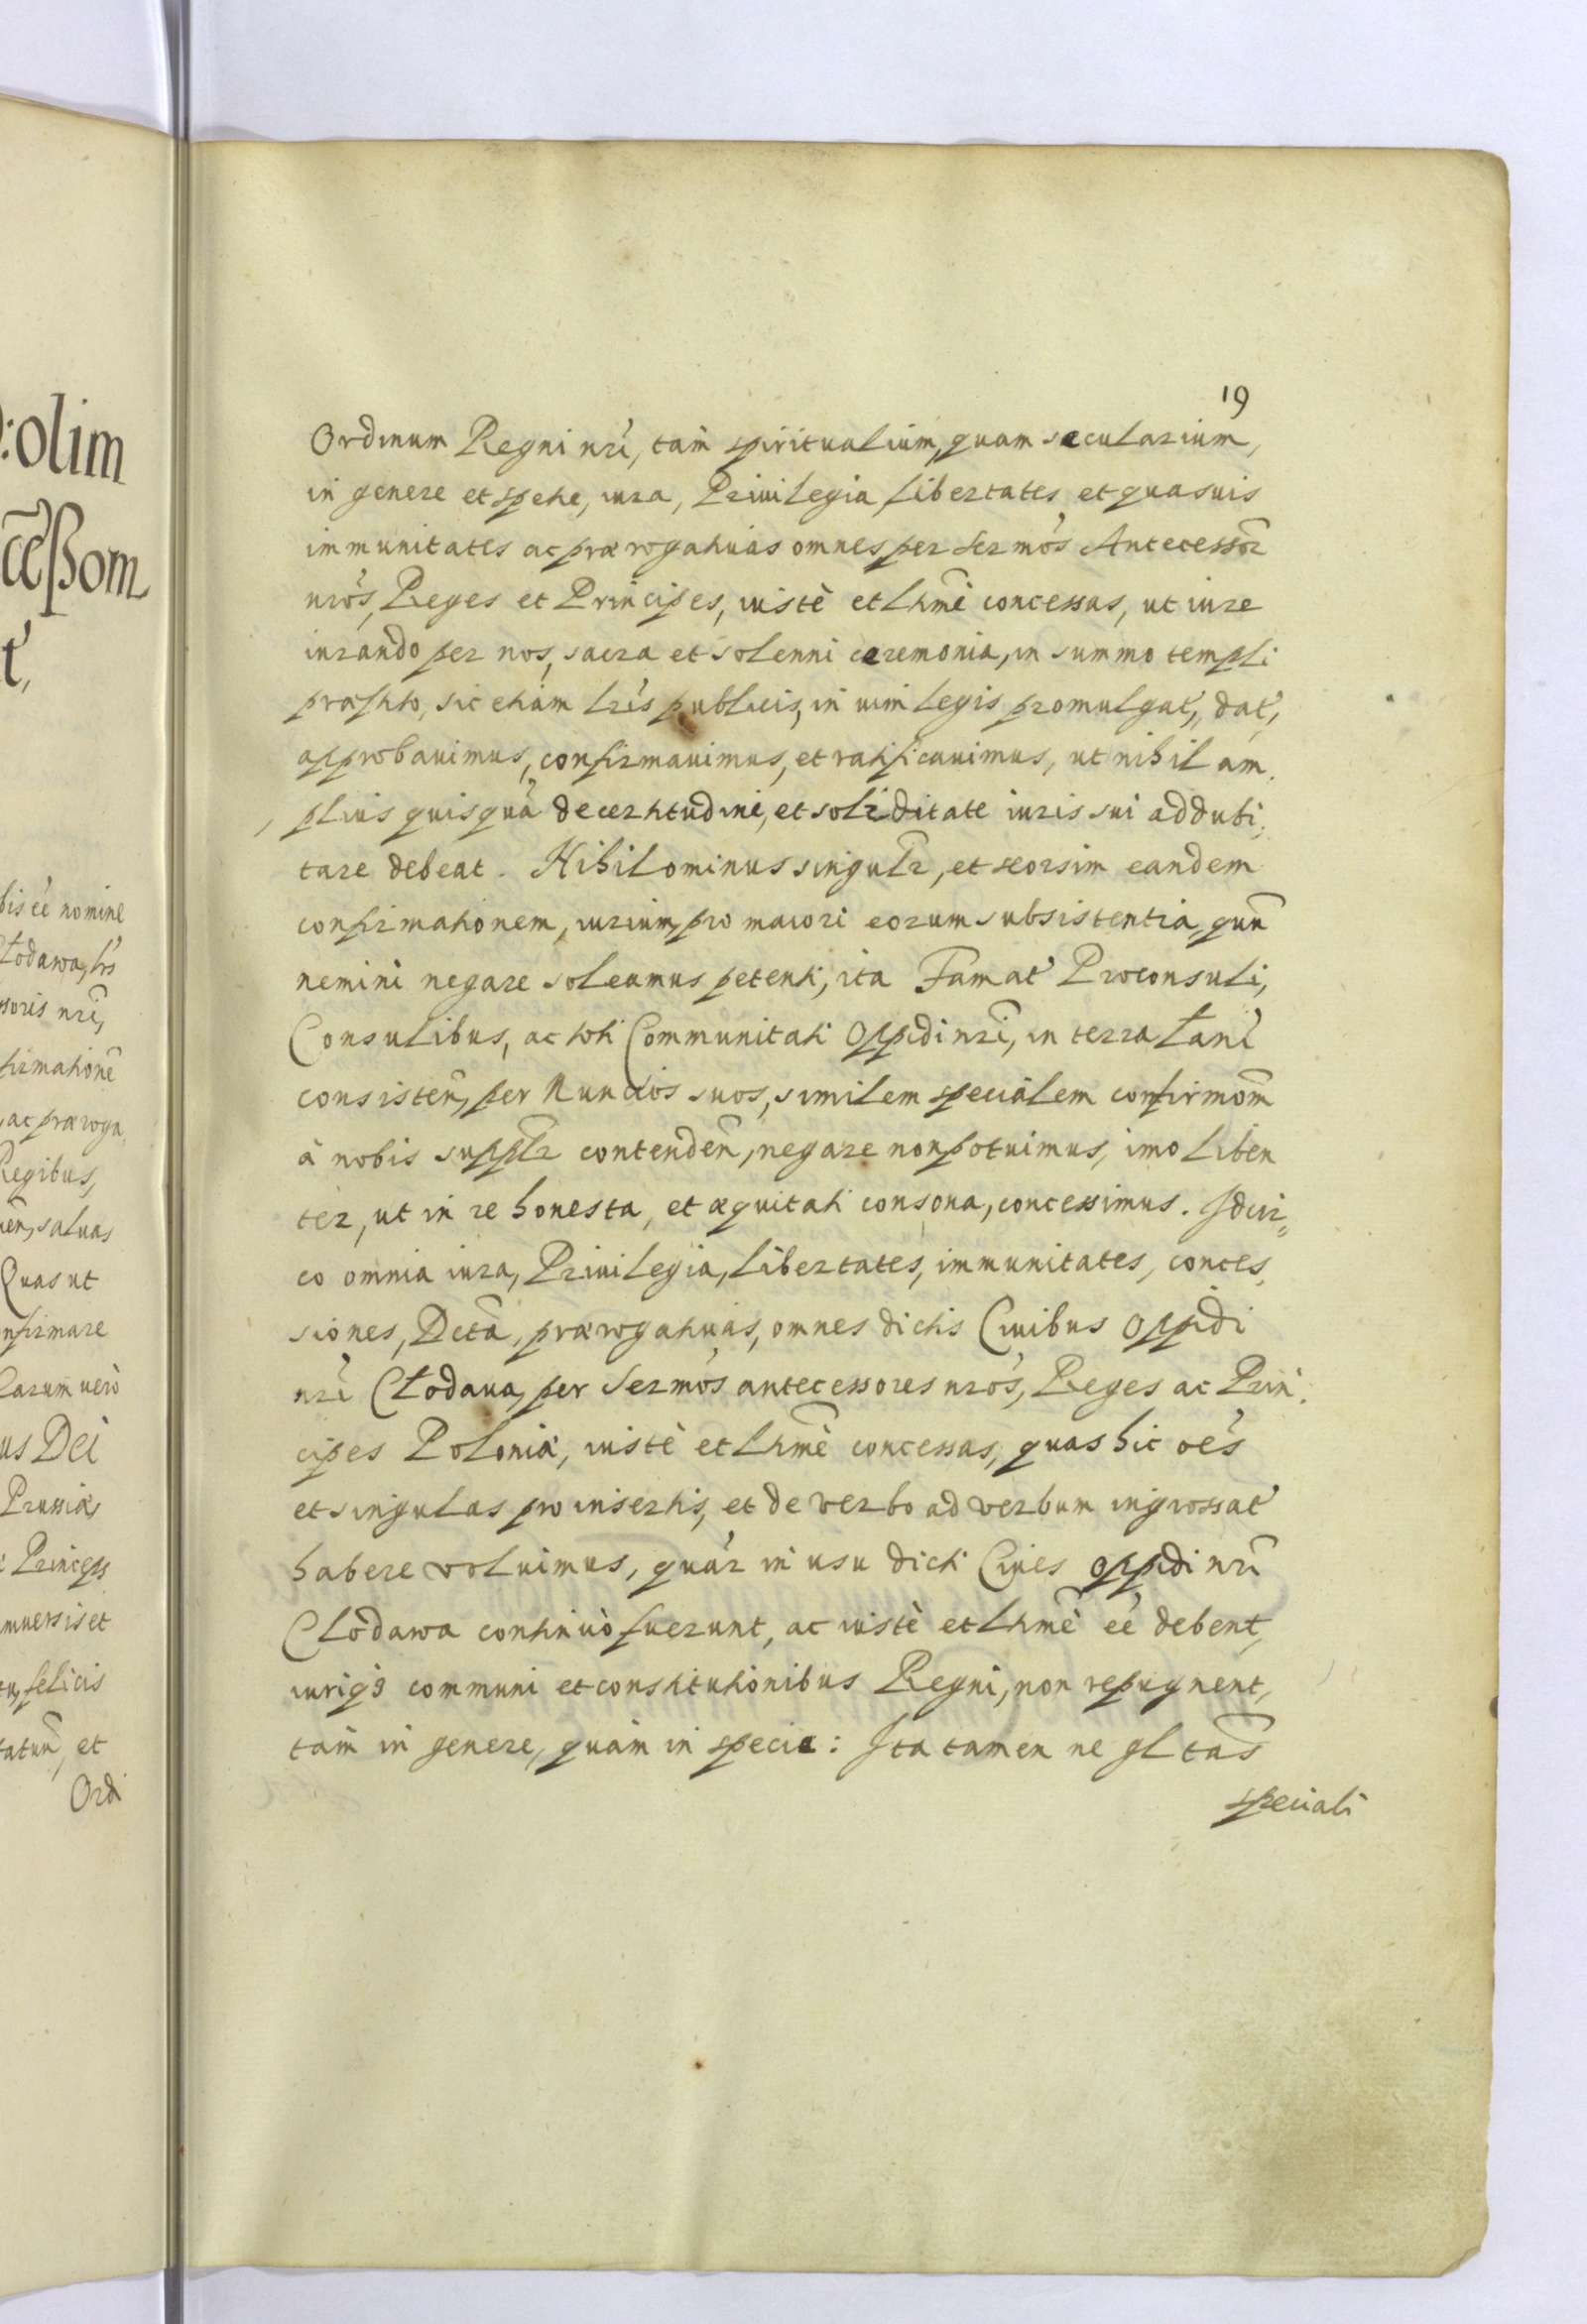 :olim
cēßom
t',
bis eē nomine
Łodawa, lrs
ssoris nrī,
firmationē
, ac præroga
Regibus,
uen, saluas
Quas ut
nfirmare
Earum uerò
us Dei
Prussiæ,
Princeps
muersis et
felicis
tatum, et
Ordi
19
Ordinum Regni nrī, tam spiritualium, quam sæcularium,
in genere et spetie, iura, Priuilegia libertates et quasuis
immunitates ac prærogatiuas omnes per sermōs Antecessōr
nrōs, Reges et Principes, iustè et lītmè concessas, ut iure
iurando per nos, sacra et solenni cæremonia, in summo templi
præstito, sic etiam lrīs publicis, in uim legis promulgat', dat',
approbauimus, confirmauimus, et ratificauimus, ut nihil am,
plius quisquā de certitudine, et soliditate iuris sui addubi,
tare debeat. Nihilominus singulr, et seorsim eandem
confirmationem, iurium, pro maiori eorum subsistentia, qun̄
nemini negare soleamus petenti, ita Famat' Proconsuli,
Consulibus, ac toti Communitati Oppidi nrī, in terra Łanī
consisten̄, per Nuncios suos, similem specialem confirmōm
à nobis supplr contenden̄, negare non potuimus, imo liben
ter, ut in re honesta, et æquitati consona, concessimus. Idcir,
co omnia iura, Priuilegia, libertates, immunitates, conces,
siones, Dcta, prærogatiuas, omnes dictis Ciuibus Oppidi
nrī Cłodaua, per sermōs antecessores nrōs, Reges ac Prin,
cipes Poloniæ, iustè et lītmè concessas, quas hic oēs
et singulas pro insertis, et de verbo ad verbum ingrossat'
habere voluimus, quār in usu dicti Ciues oppidi nrī
Clodawa continuò fuerunt, ac iustè et lītmè eē debent,
iuriq3 communi et constitutionibus Regni, non repugnent,
tam in genere, quàm in specie: Ita tamen ne gl tas̄
speciali